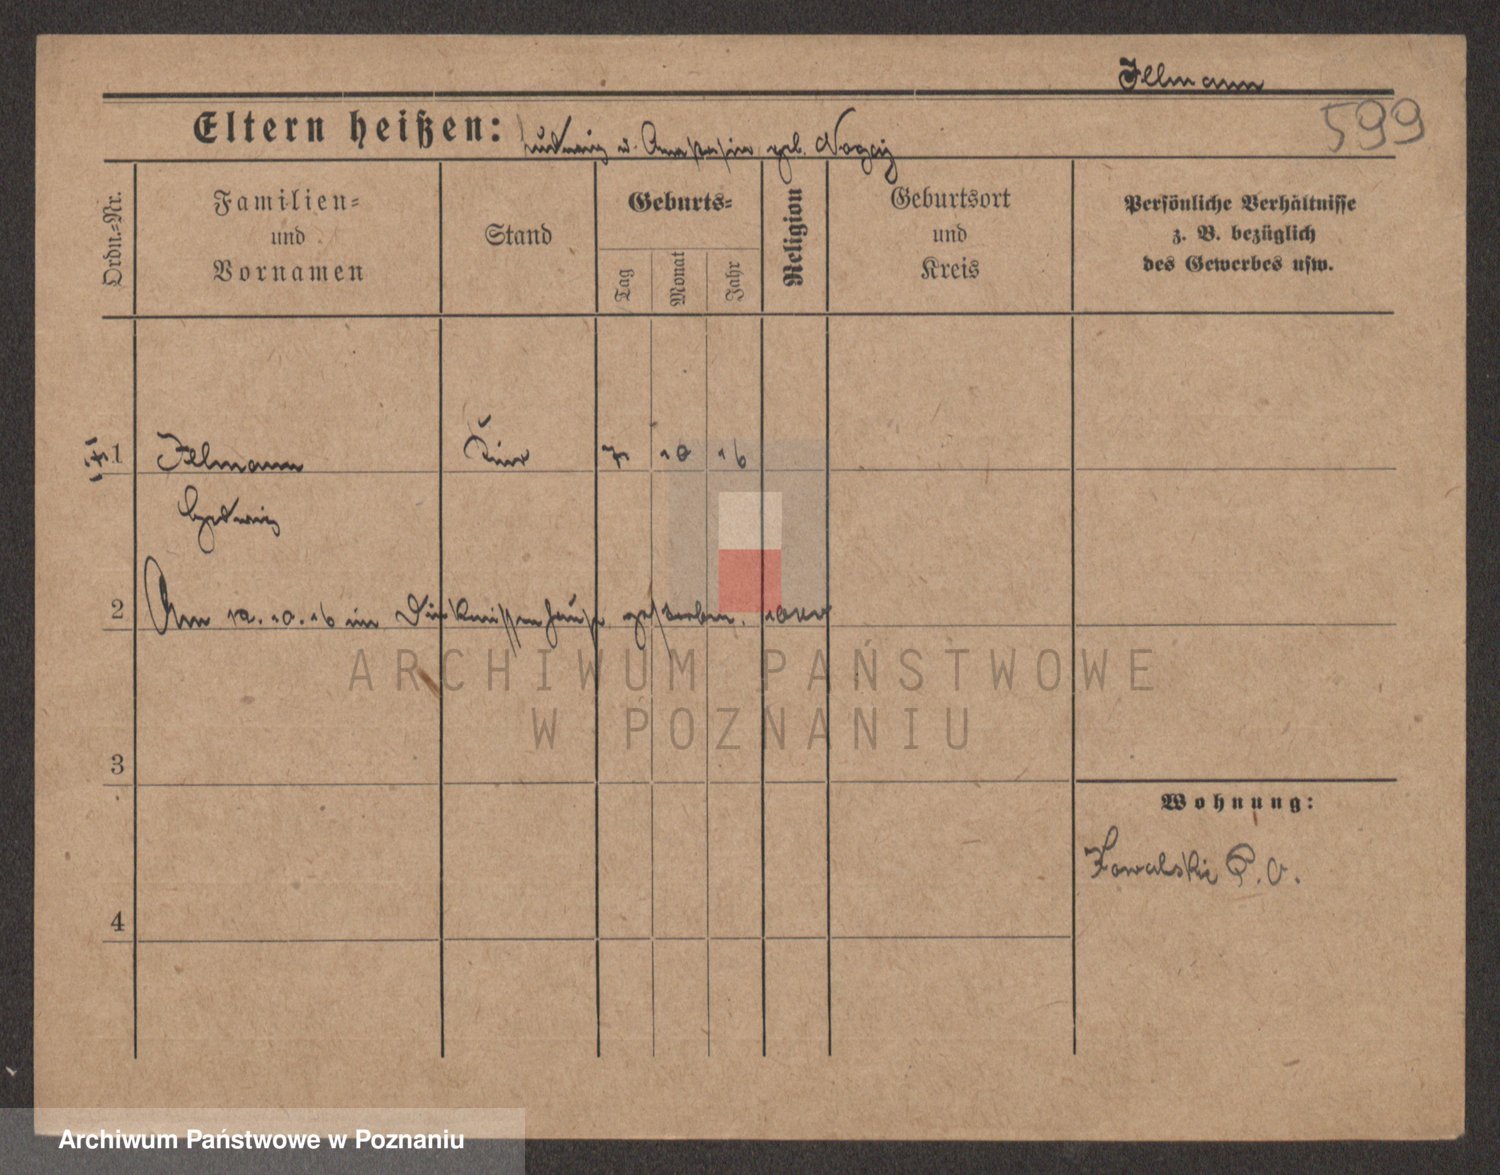 Illmann
599
Eltern heißen: Ludwig u. Anastasia geb. Nogaj
Ordn.-Nr.
Familien-
und
Vornamen
Stand
Geburts-
Tag
Monat
Jahr
Religion
Geburtsort
und
Kreis
Persönliche Verhältnisse
z. B. bezüglich
des Gewerbes usw.
1 Illmann 7 10 16
Hedwig
2 Am 12.10.16 im Diakonissenhause gestorben.
ARCHIWUM PAŃSTWOWE
W POZNANIU
3
Wohnung:
Kowalski P. O.
4
Archiwum Państwowe w Poznaniu